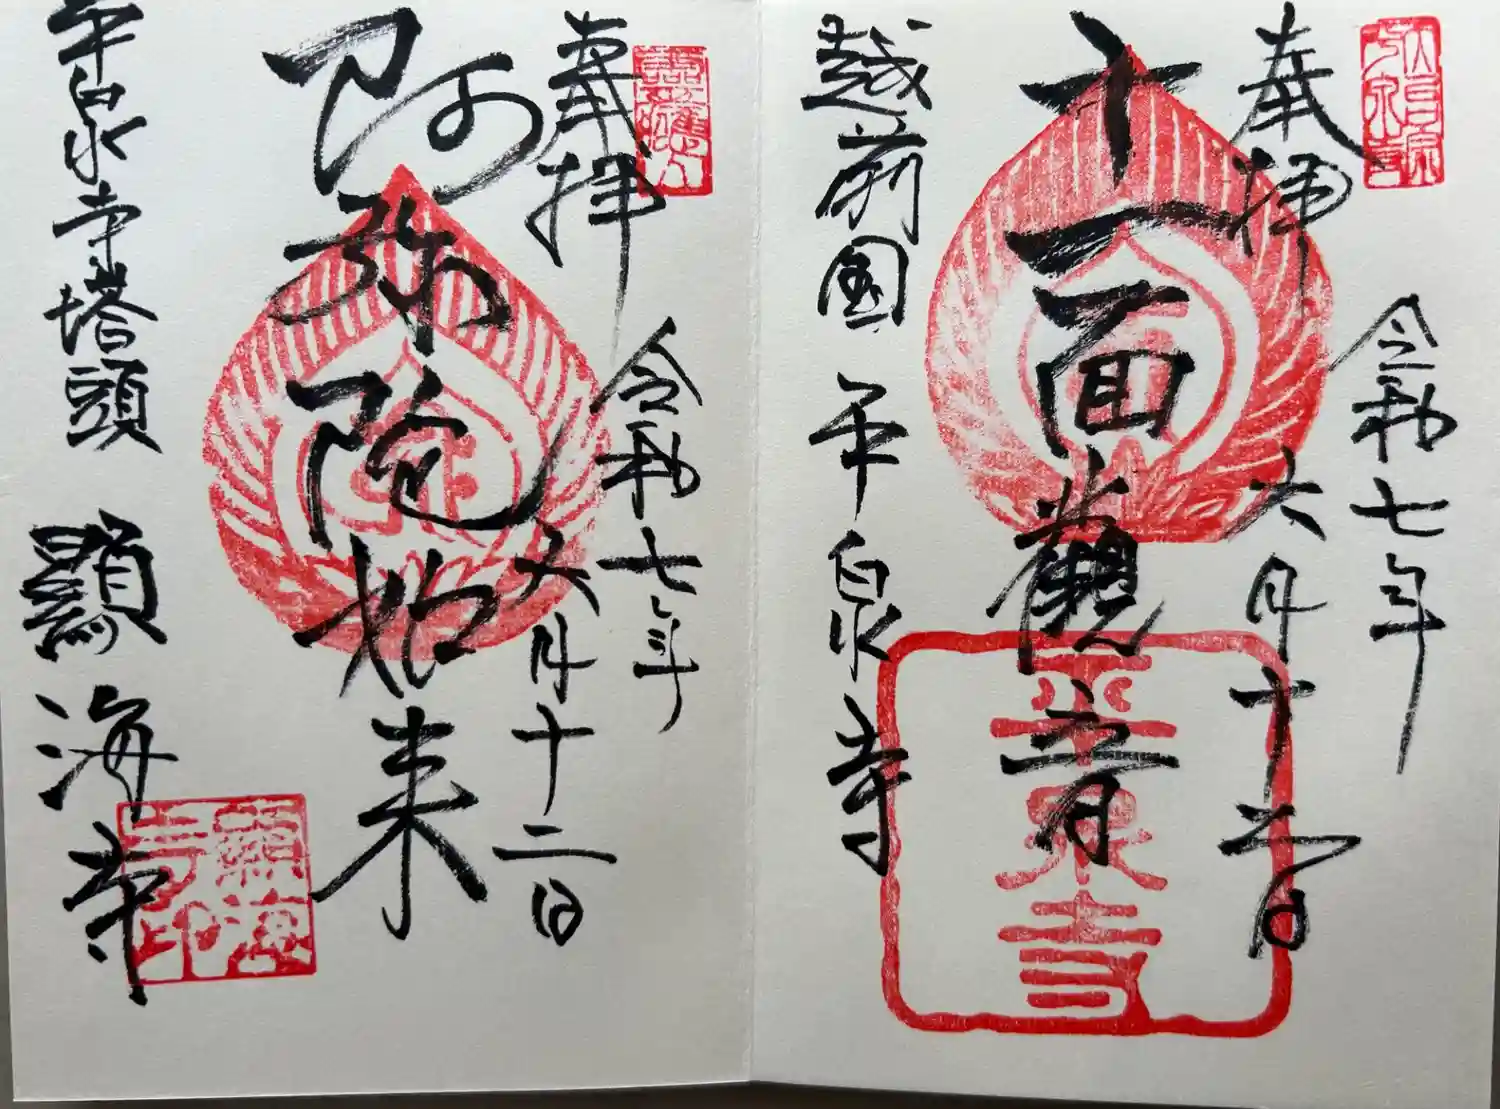 奉拝
令和七年
六月十二日
十一面觀音
越前國 平泉寺
平泉寺
奉拝
令和七年
六月十二日
阿弥陀如来
平泉寺塔頭 顯海寺
顯海寺印